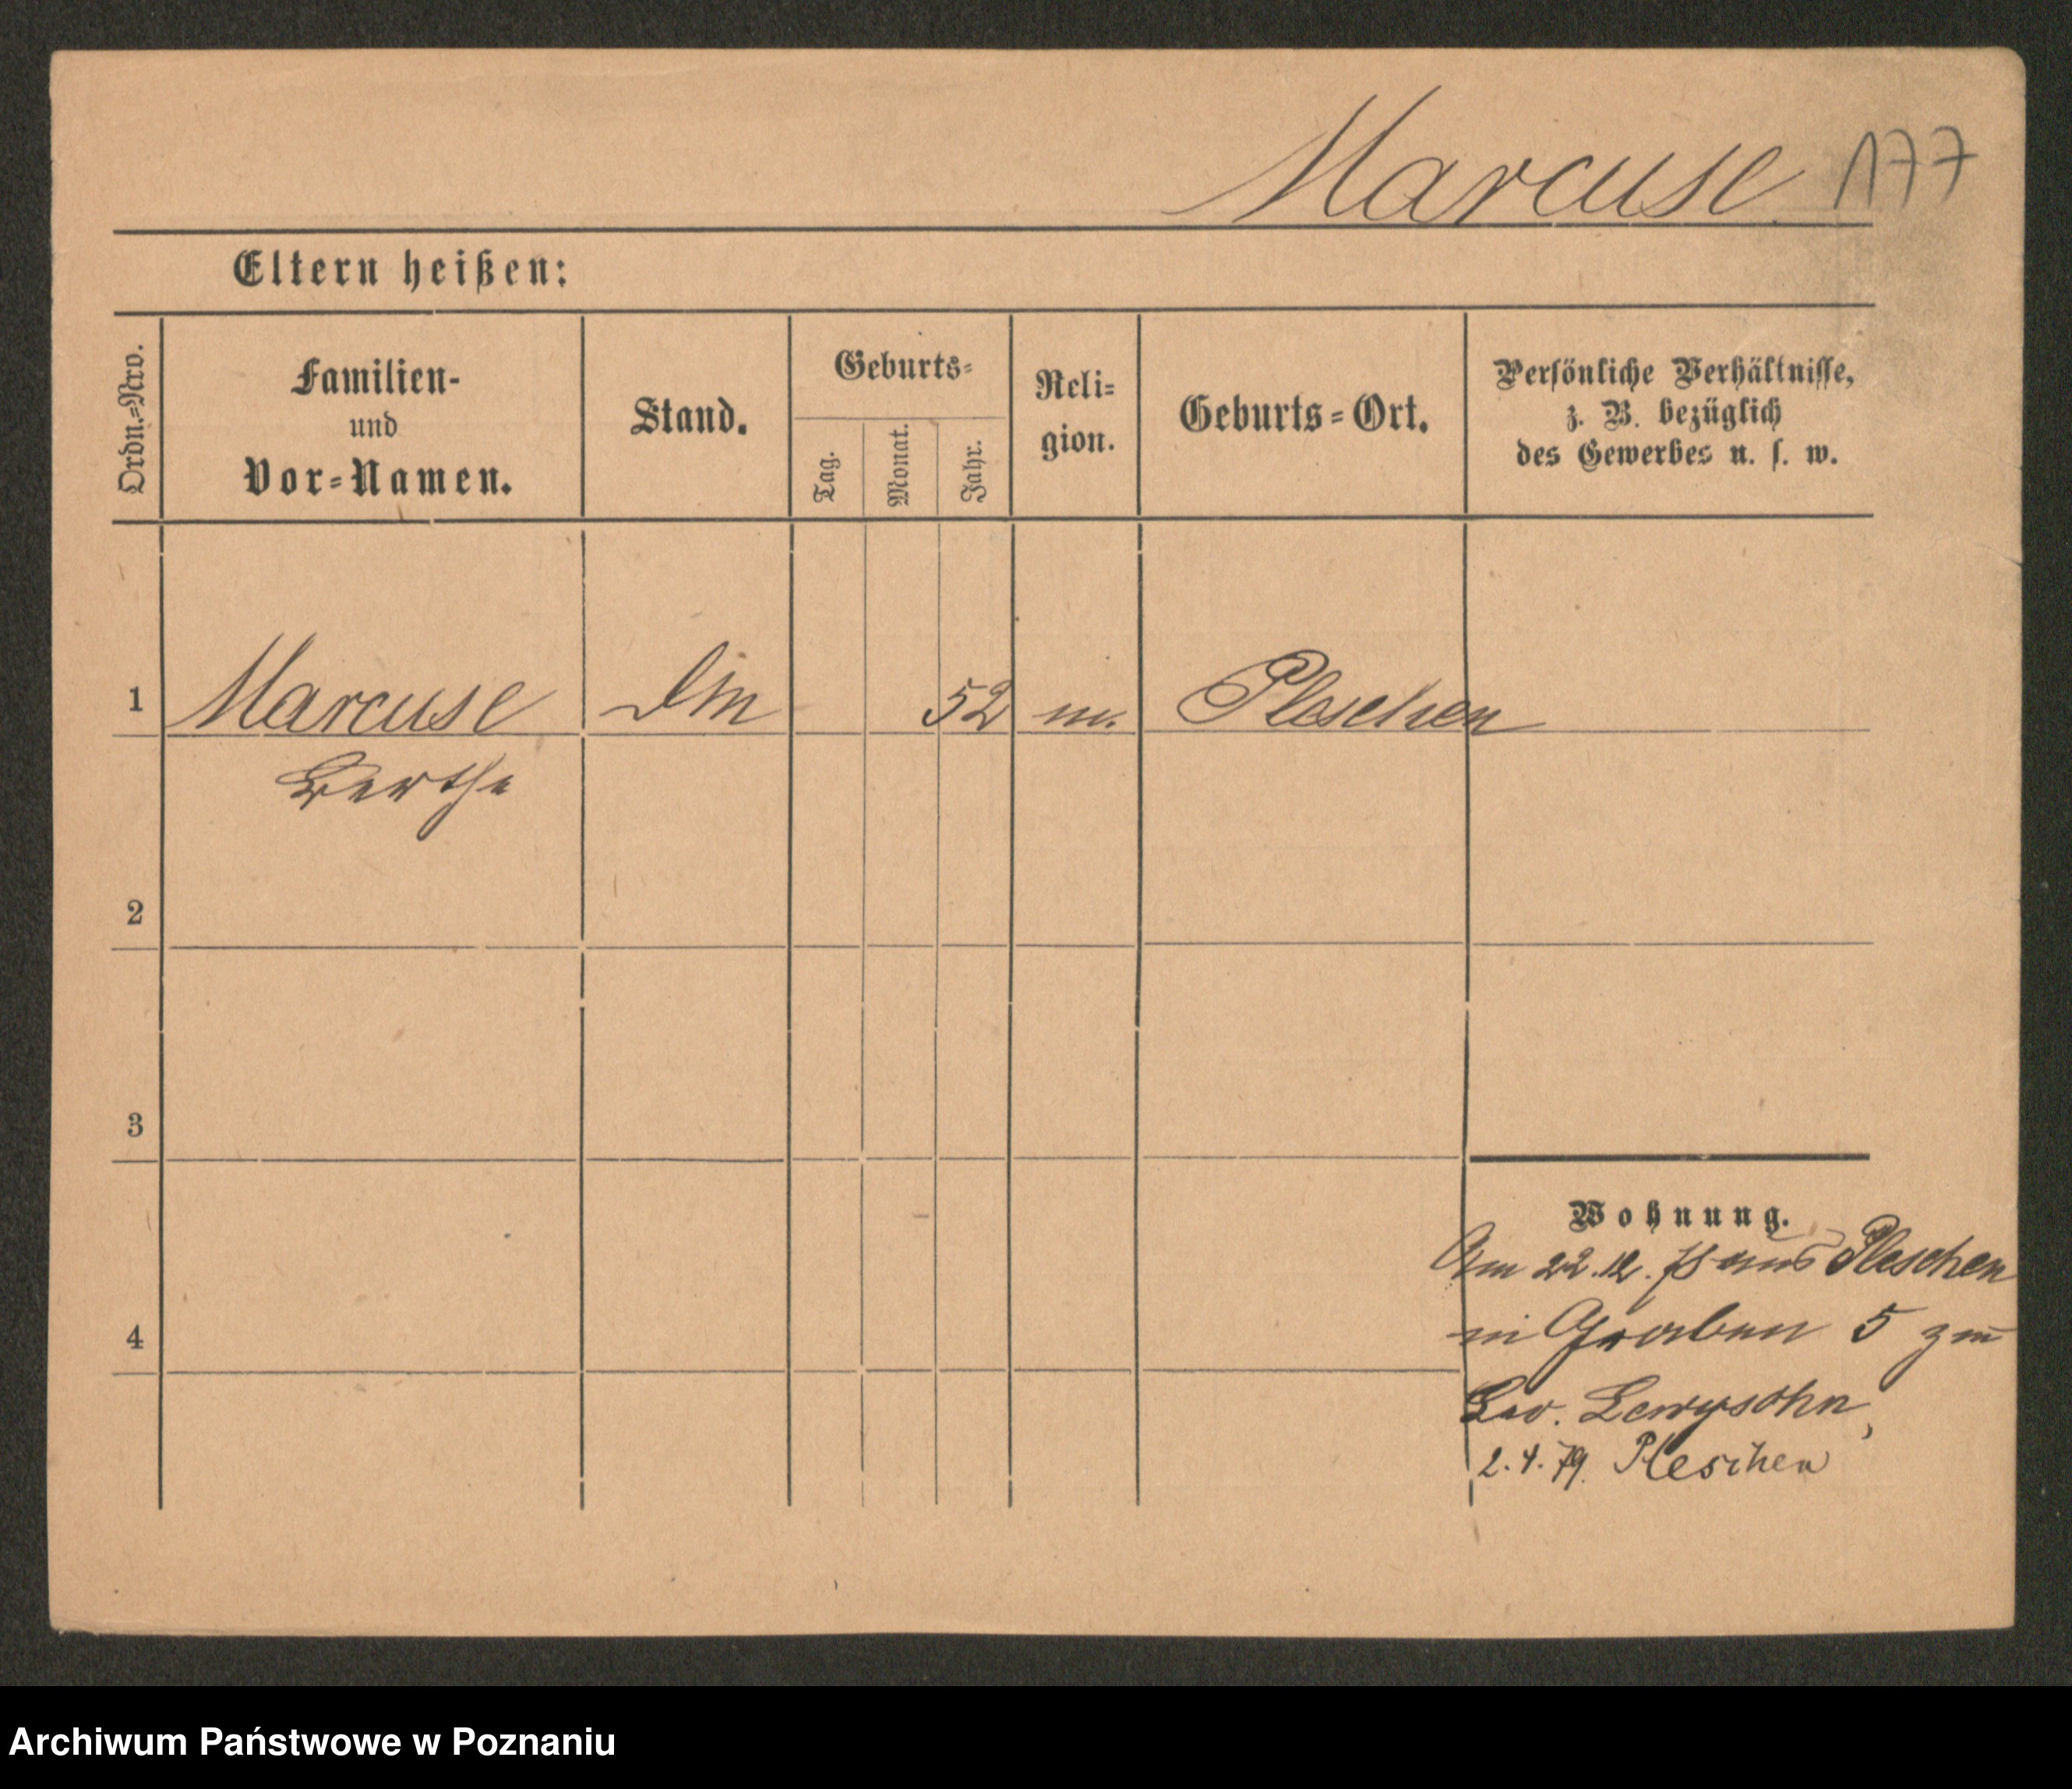 Marcuse 177
Eltern heißen:
Ordn.=Nro.
Familien-
und
Vor=Namen.
Stand.
Geburts=
Tag.
Monat.
Jahr.
Reli=
gion.
Geburts=Ort.
Persönliche Verhältnisse,
z. B. bezüglich
des Gewerbes u. s. w.
1 Marcuse 52 m. Pleschen
Berthe
2
3
4
Wohnung.
Am 22.12. 78 aus Pleschen
in Graben 5
Lewysohn,
2.4.79. Pleschen
Archiwum Państwowe w Poznaniu